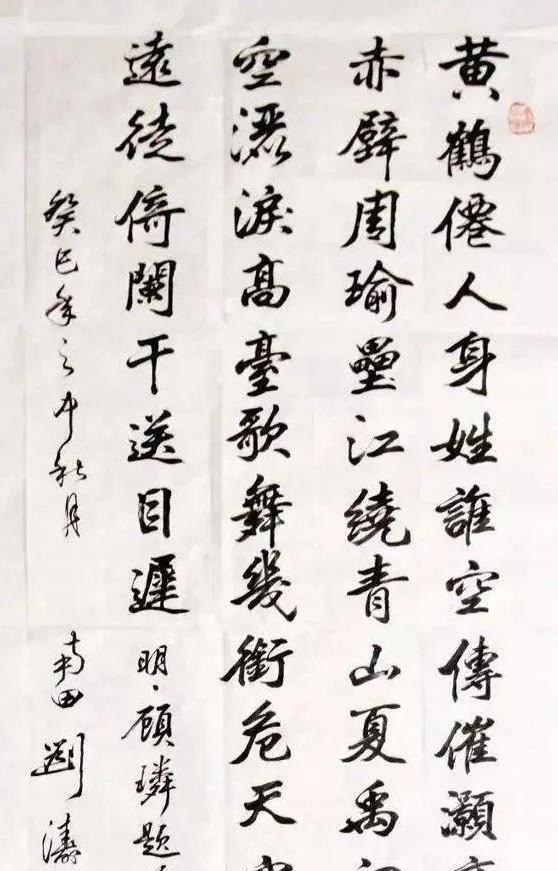 黄鶴僊人身姓誰空傳催灝
赤壁周瑜壘江繞青山夏禹
空灑淚高臺歌舞幾銜危天
遠徙倚闌干送目遲 明·顾璘題
癸巳年之中秋月 南田劉濤